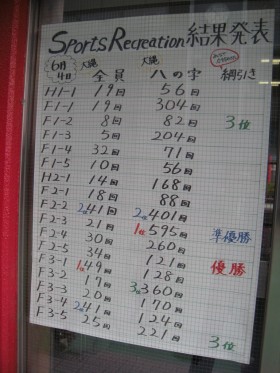 Sports Recreation 結果発表
6月4日 大縄 全員 大縄 八の字 綱引き
H1-1 19回 56回
F1-1 19回 304回
F1-2 8回 82回 3位
F1-3 5回 204回
F1-4 32回 71回
F1-5 10回 56回
H2-1 14回 168回
F2-1 18回 88回
F2-2 2位41回 2位401回
F2-3 1位595回 準優勝
F2-4 30回 260回
F2-5 34回 121回 優勝
F3-1 1位49回 128回
F3-2 17回 3位360回
F3-3 20回 170回
F3-4 2位41回 124回
F3-5 25回 221回 3位